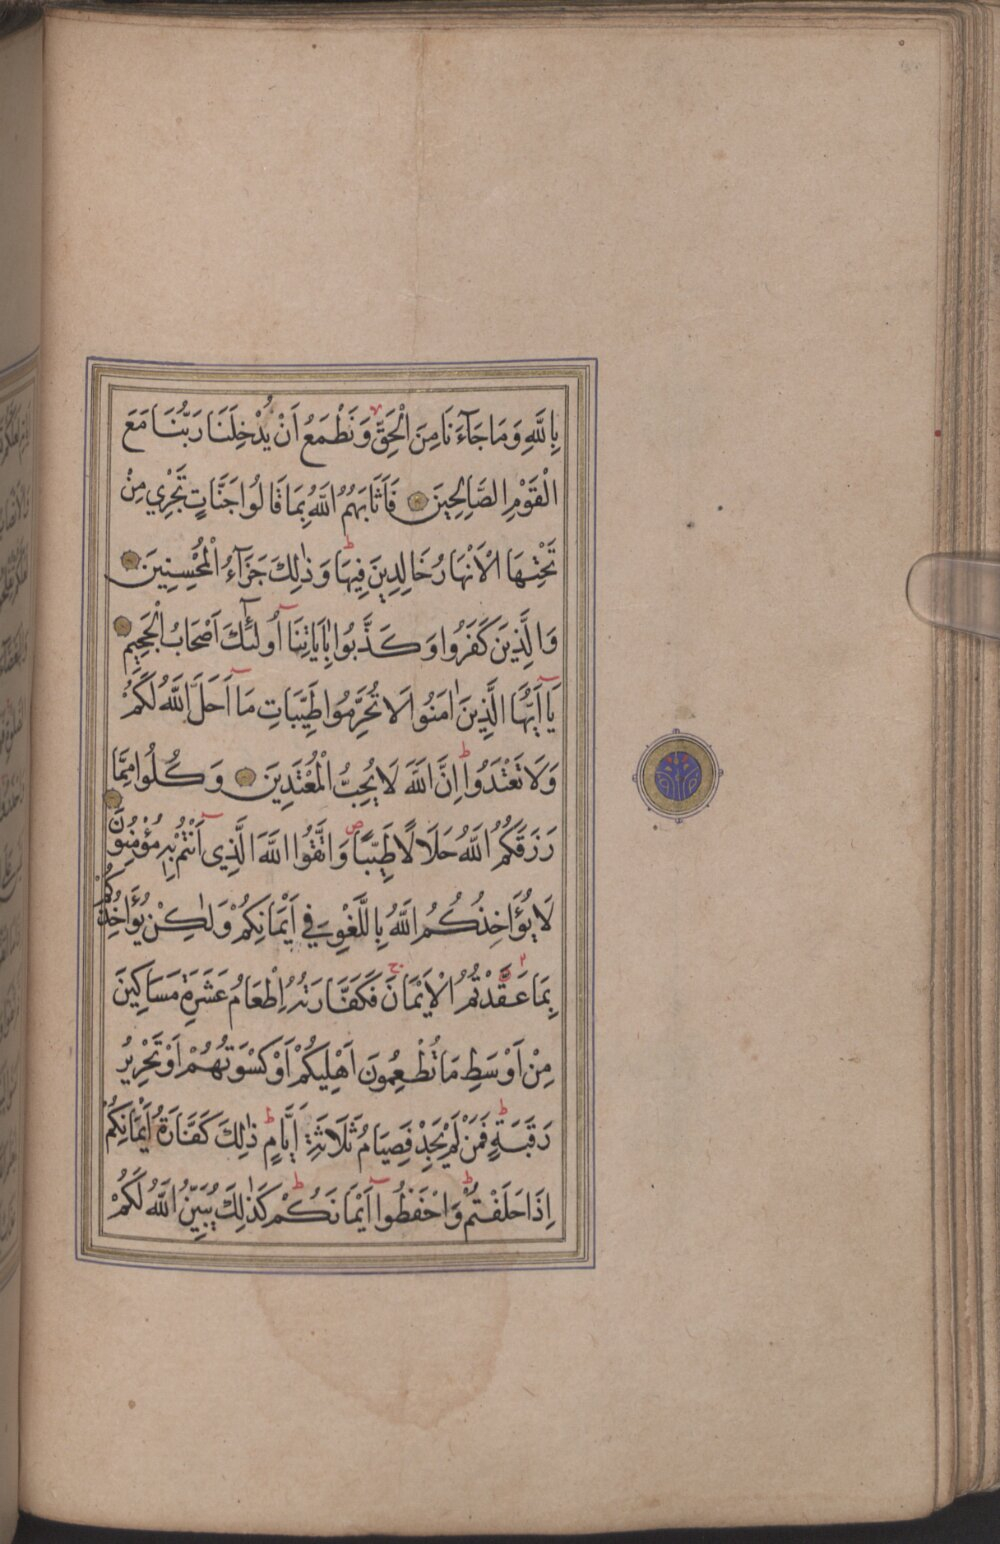 بِاللَّهِ وَمَا جَآءَنَا مِنَ الْحَقِّ وَنَطْمَعُ اَنْ يُدْخِلَنَا رَبُّنَا مَعَ
الْقَوْمِ الصَّالِحِينَ فَاَثَابَهُمُ اللَّهُ بِمَا قَالُوا جَنَّاتٍ تَجْرِي مِنْ
تَحْتِهَا الْاَنْهَارُ خَالِدِينَ فِيهَا وَذٰلِكَ جَزَآءُ الْمُحْسِنِينَ
وَالَّذِينَ كَفَرُوا وَكَذَّبُوا بِاٰيَاتِنَآ اُولٰٓئِكَ اَصْحَابُ الْجَحِيمِ
يَآ اَيُّهَا الَّذِينَ اٰمَنُوا لَا تُحَرِّمُوا طَيِّبَاتِ مَآ اَحَلَّ اللَّهُ لَكُمْ
وَلَا تَعْتَدُوا اِنَّ اللَّهَ لَا يُحِبُّ الْمُعْتَدِينَ وَكُلُوا مِمَّا
رَزَقَكُمُ اللَّهُ حَلَالًا طَيِّبًا وَاتَّقُوا اللَّهَ الَّذِى اَنْتُمْ بِهِ مُؤْمِنُونَ
لَا يُؤَاخِذُكُمُ اللَّهُ بِاللَّغْوِ فِي اَيْمَانِكُمْ وَلٰكِنْ يُؤَاخِذُكُمْ
بِمَا عَقَّدْتُمُ الْاَيْمَانَ فَكَفَّارَتُهُ اِطْعَامُ عَشَرَةِ مَسَاكِينَ
مِنْ اَوْسَطِ مَا تُطْعِمُونَ اَهْلِيكُمْ اَوْ كِسْوَتُهُمْ اَوْ تَحْرِيرُ
رَقَبَةٍ فَمَنْ لَمْ يَجِدْ فَصِيَامُ ثَلَاثَةِ اَيَّامٍ ذٰلِكَ كَفَّارَةُ اَيْمَانِكُمْ
اِذَا حَلَفْتُمْ وَاحْفَظُوآ اَيْمَانَكُمْ كَذٰلِكَ يُبَيِّنُ اللَّهُ لَكُمْ